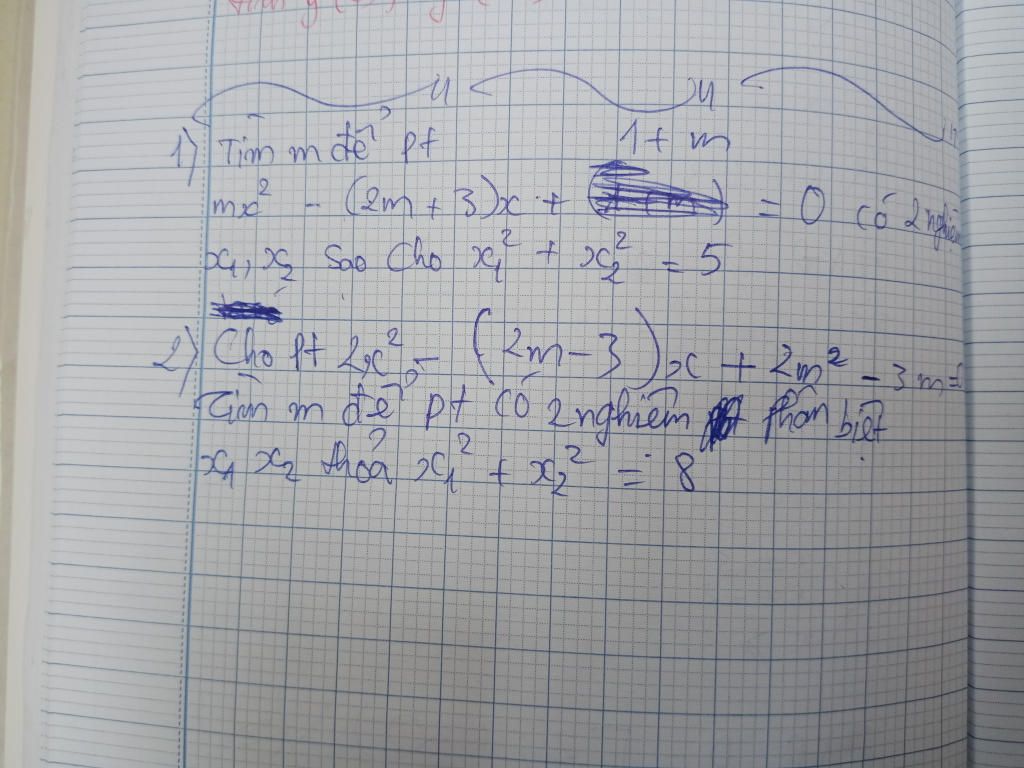 1) Tìm m để pt
1 + m
mx² - (2m + 3)x + = 0 có 2 nghiệm
x₁, x₂ sao cho x₁² + x₂² = 5
2) Cho pt 2x² - (2m - 3)x + 2m² - 3m =
Tìm m để pt có 2 nghiệm phân biệt
x₁ x₂ thỏa x₁² + x₂² = 8